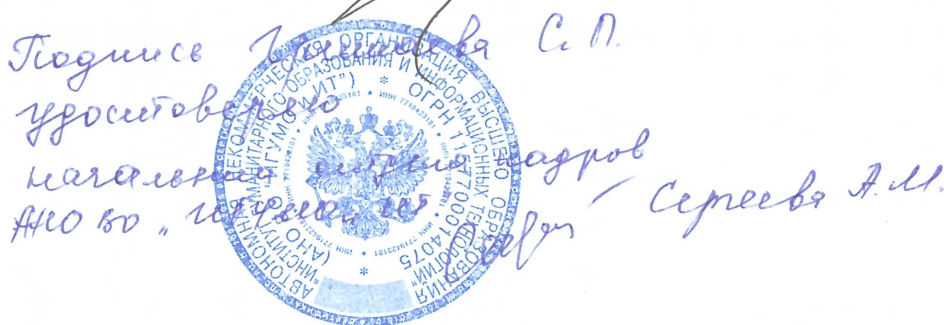 Подпись С.П.
удостоверяю
начальник отдела кадров
АНО ВО „ИГУМО и ИТ" Сергеева А.М.
АВТОНОМНАЯ НЕКОММЕРЧЕСКАЯ ОРГАНИЗАЦИЯ ВЫСШЕГО ОБРАЗОВАНИЯ
"ИНСТИТУТ ГУМАНИТАРНОГО ОБРАЗОВАНИЯ И ИНФОРМАЦИОННЫХ ТЕХНОЛОГИЙ"
(АНО ВО "ИГУМО и ИТ") * ОГРН 1157700014075 *